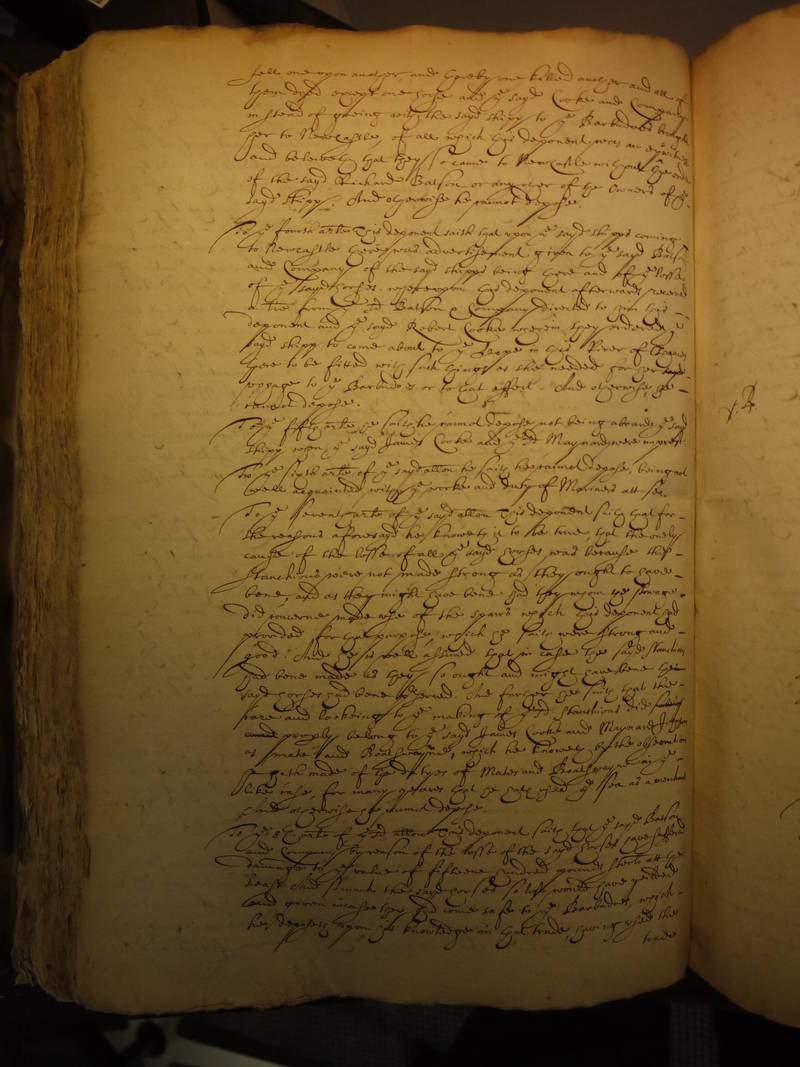 fell one upon another and thereby one killed another and all of
them dyed except one horse and ye sayd Cooke and Company
in stead of goeing with the sayd shipp to ye Barbados brought
her to Newcastle, of all which this deponent was an eyewitnes
and beleiveth that they so came to Newcastle without the order
of the sayd Richard Batson or any other of the Owners of ye
sayd shipp. And otherwise he cannot depose.
To ye fourth arte this deponent saith that upon ye sayd shipps coming
to Newcastle there was advertisement given to ye sayd Batson
and Company of the sayd shipps being there and of ye losse
of ye sayd horses. whereupon this deponent afterwards received
a tre from ye sd Batson & Company directed to him this
deponent and ye sayd Robert Cooke wherein they ordered ye
sayd shipp to come about to ye Hope in this River of Thames
there to be fitted with such things as shee needed for her sayd
voyage to ye Barbados or to that effect. And otherwise he
cannot depose.
To ye fifth arte he saith he cannot depose not being aboard ye sayd
shipp when ye sayd James Cooke and ye sd Maynard were imprest
To ye sixth arte of ye sayd allon he saith he cannot depose, being not
well acquainted with ye worke and duty of Mariners att sea.
To ye seventh arte of ye sayd allon this deponent saith that for
the reasons aforesayd he knoweth it to be true that the onely
cause of the losse of all ye sayd horses was because the
stanchions were not made strong as they ought to have
bene, and as they might have bene had they upon the stowage
did concerne made use of the spars which this deponent had
provided for that purpose, which he saith were strong and
good. And he is well assured that in case the sayd stanchions
had bene made as they so ought and might have bene the
sayd horses had bene preserved. And further he saith that the
care and lookeing to ye making of ye sd stanchions did
properly belong to ye sayd James Cooke and Maynard
as mate and Boatswayne, which he knoweth by the observation
he hath made of the dutyes of Mates and Boatswaynes in ye
like case, for many yeares that he hath used ye sea as a merchant
And otherwise he cannot depose.
To ye 8th arte of ye sd allon this deponent saith that ye sayd Batson
and Company by reason of the losse of the sayd horses have suffered
dammage to ye value of fifteene hundred pounds sterl att the
least And so much the sayd horses so lost would have yeilded
and given in case they had come safe to ye Barbados, which
he deposeth upon his knowledge in that trade, having used the
trade